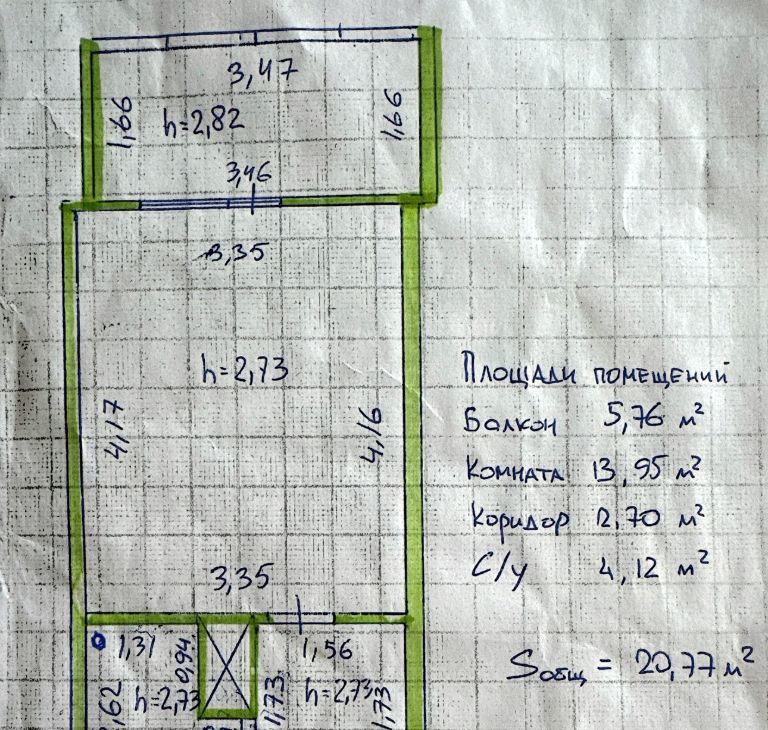 3,47
1,66
h=2,82
1,66
3,46
3,35
h=2,73
4,17
4,16
3,35
Площади помещений
Балкон 5,76 м²
Комната 13,95 м²
Коридор 2,70 м²
С/у 4,12 м²
Sобщ = 20,77 м²
1,31
0,94
1,56
h=2,73
1,73
h=2,73
1,73